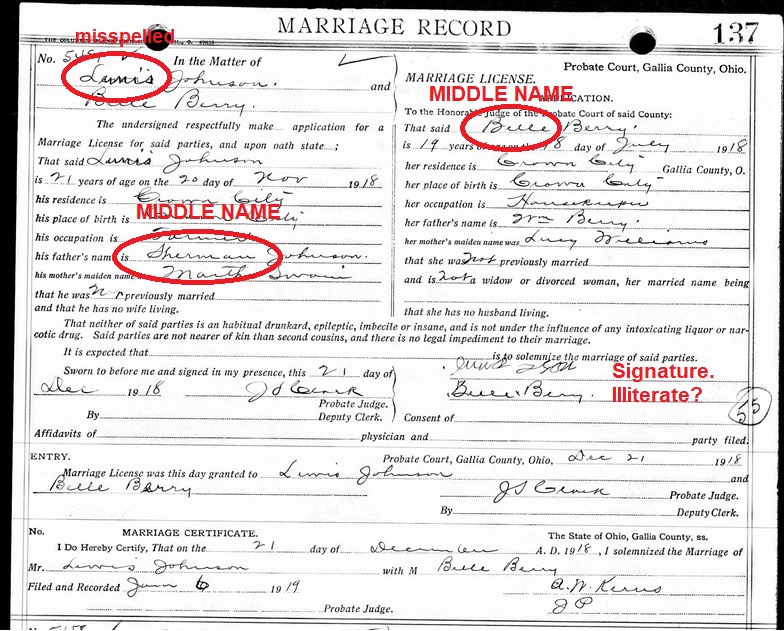 MARRIAGE RECORD
137
misspelled
No. 545
In the Matter of
Lewis Johnson. and
Belle Berry.
The undersigned respectfully make application for a
Marriage License for said parties, and upon oath state;
That said Lewis Johnson
is 21 years of age on the 20 day of Nov 1918
his residence is Crown City
his place of birth is City
MIDDLE NAME
his occupation is Farmer
his father's name is Sherman Johnson.
his mother's maiden name Martha Swain
that he was not previously married
and that he has no wife living.
Probate Court, Gallia County, Ohio.
MARRIAGE LICENSE.
MIDDLE NAME
APPLICATION.
To the Honorable Judge of the Probate Court of said County:
That said Belle Berry.
is 19 years of age on the 18 day of July 1918
her residence is Crown City Gallia County, O.
her place of birth is Crown City
her occupation is Housekeeper
her father's name is Wm Berry.
her mother's maiden name was Lucy Williams
that she was not previously married
and is not a widow or divorced woman, her married name being
that she has no husband living.
That neither of said parties is an habitual drunkard, epileptic, imbecile or insane, and is not under the influence of any intoxicating liquor or nar-
cotic drug. Said parties are not nearer of kin than second cousins, and there is no legal impediment to their marriage.
It is expected that is to solemnize the marriage of said parties.
Sworn to before me and signed in my presence, this 21 day of
Dec 1918 J S Clark
Probate Judge.
By Deputy Clerk.
Belle Berry.
Signature.
Illiterate?
Consent of
55
Affidavits of physician and party filed.
ENTRY.
Probate Court, Gallia County, Ohio, Dec 21 1918
Marriage License was this day granted to Lewis Johnson and
Belle Berry
J S Clark Probate Judge.
By Deputy Clerk.
No. MARRIAGE CERTIFICATE.
The State of Ohio, Gallia County, ss.
I Do Hereby Certify, That on the 21 day of December A. D. 1918, I solemnized the Marriage of
Mr. Lewis Johnson with M Belle Berry
Filed and Recorded Jan 6 1919
A. W. Kerns
J P
Probate Judge.